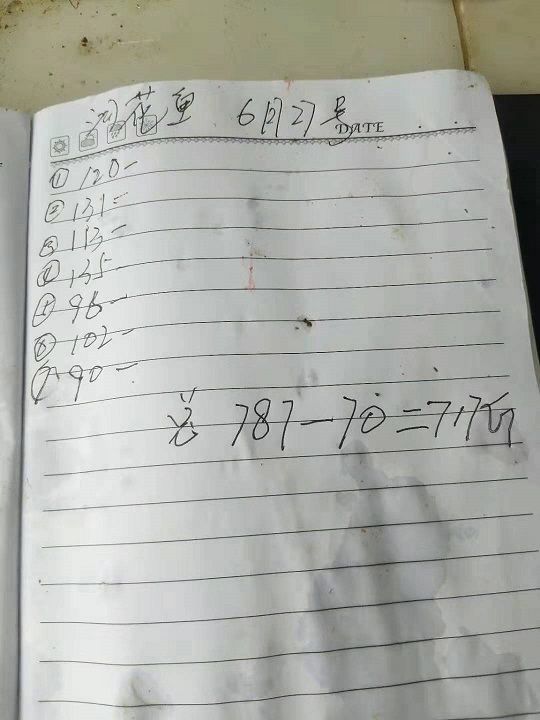 花 6月27号
DATE
① 120-
② 131=
③ 113-
④ 135-
⑤ 96-
⑥ 102-
⑦ 90-
总 787-70=717斤